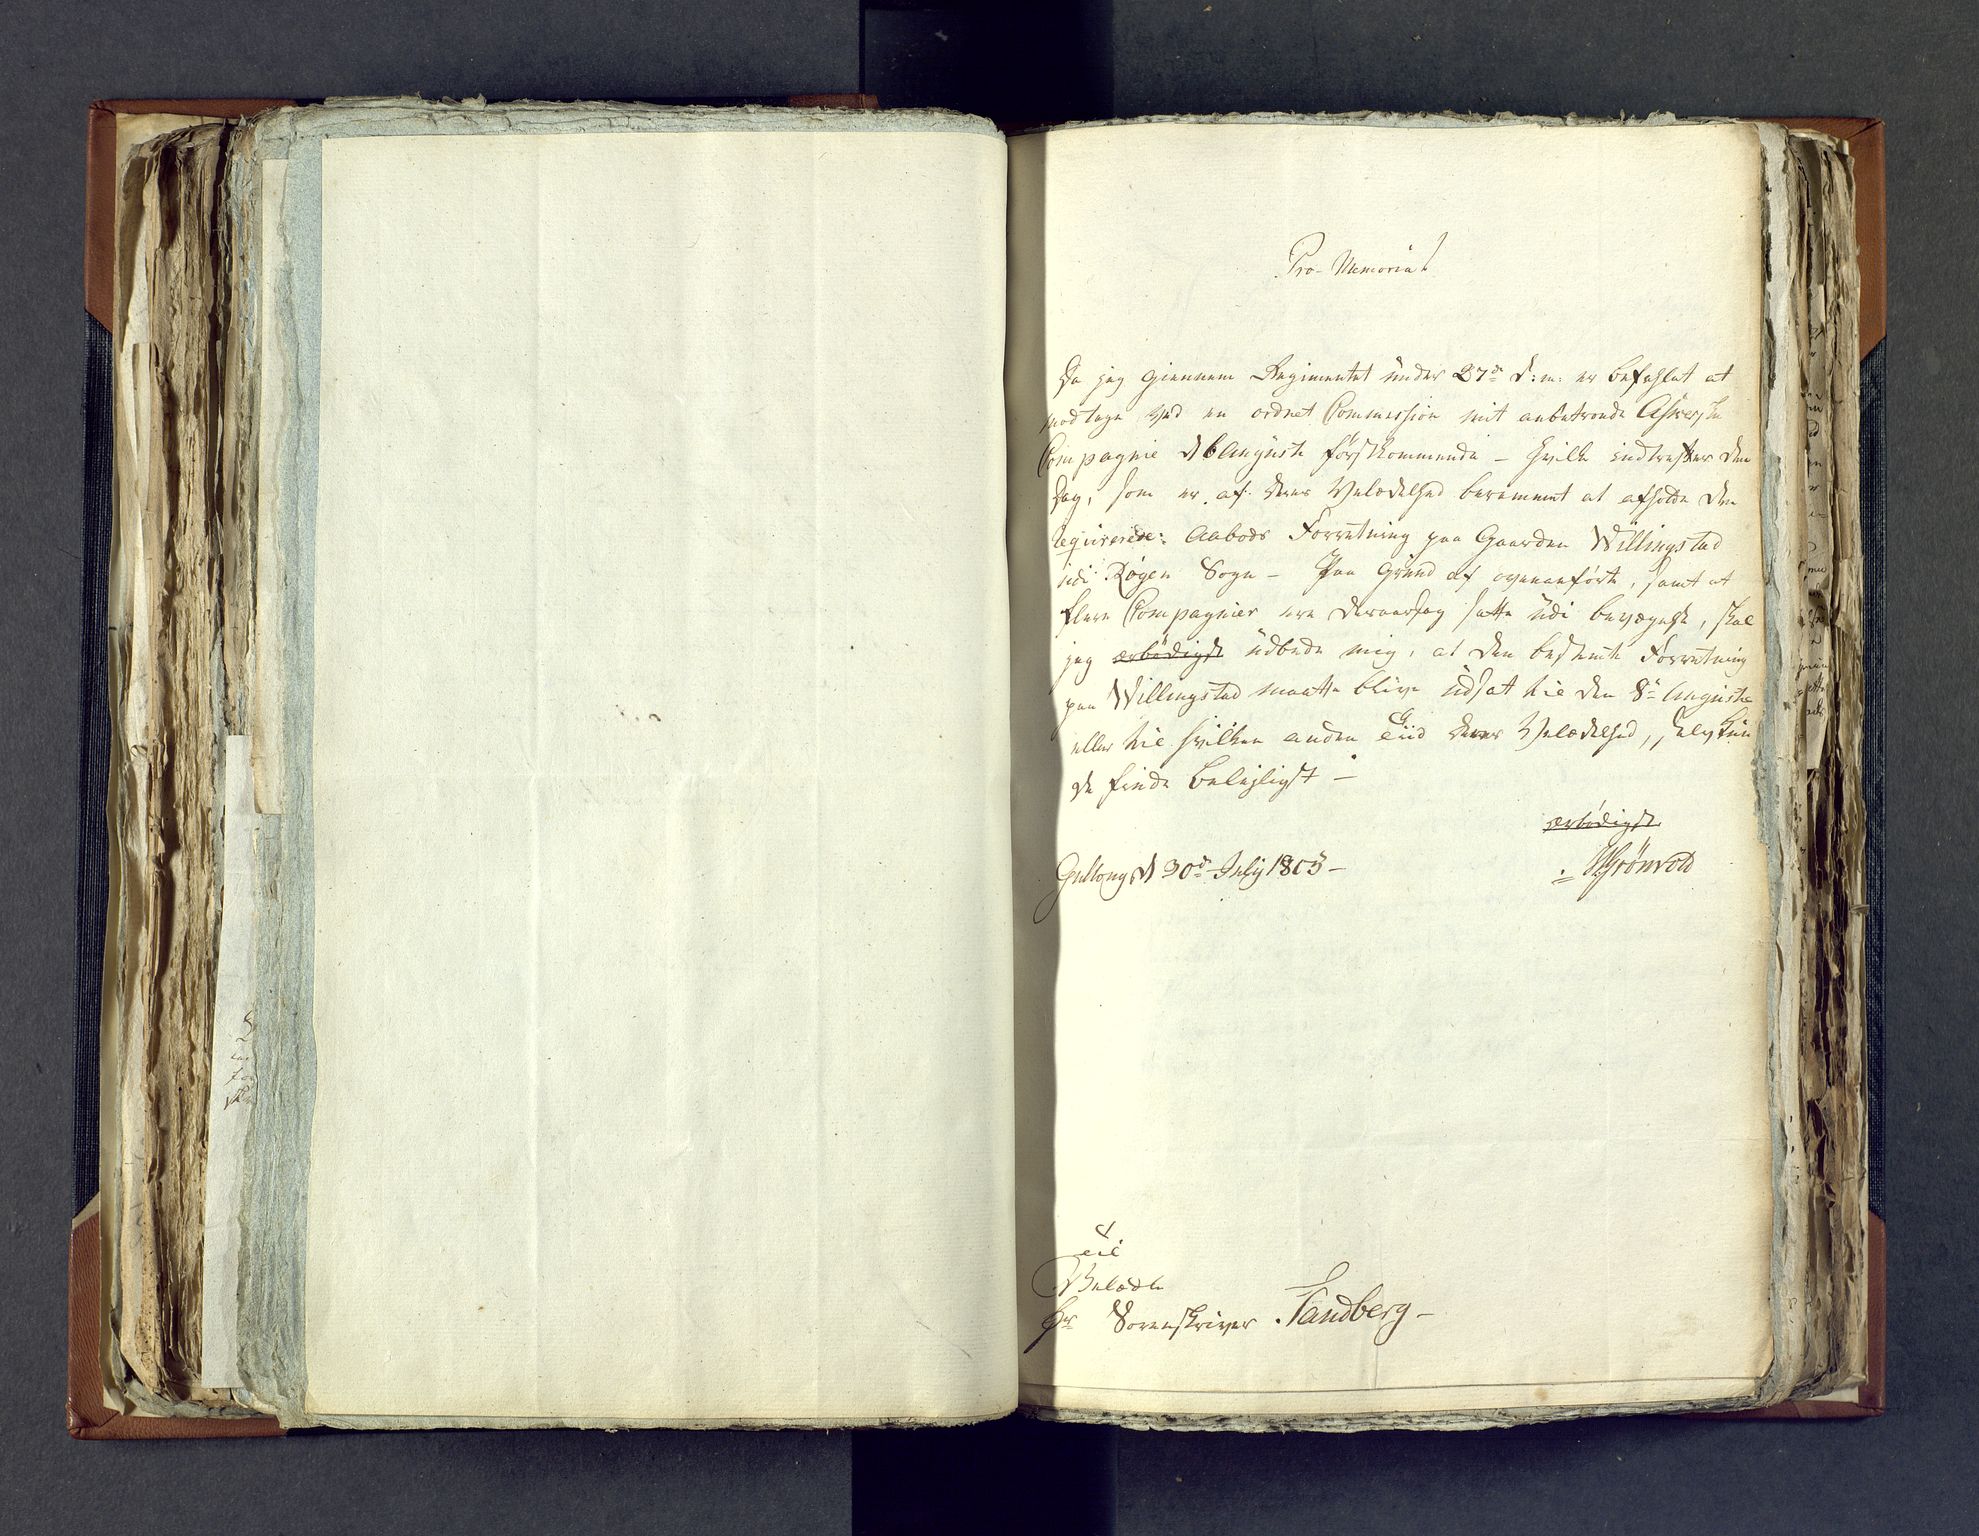 Pro-Memoria!
Da jeg giennem Regimentet under 27de d: m: er befahlet at
modtage ved en ordnet Commission mit anbetroede Askerske
Compagnie d 6 Auguste førstkommende - hvilke indtreffer den
Dag, som er af Deres Velædelhed berammet at afholde den
requirerede: Aabods Forretning paa Gaarden Willingstad
udi Røgen Sogn - Paa Grund af ovenanførte, samt at
flere Compagnier ere satte udi bevægelse, skal
jeg ærbødigst udbede mig, at den bestemte Forretning
paa Willingstad maatte blive udsat til den 8de Auguste
eller til hvilken anden Tiid Deres Velædelhed, selv
de finde beleyligst -
ærbødigst
Gultong d 30de July 1803 -
Grönvold
Til
Velædle
Hr Sorenskriver Sandberg -